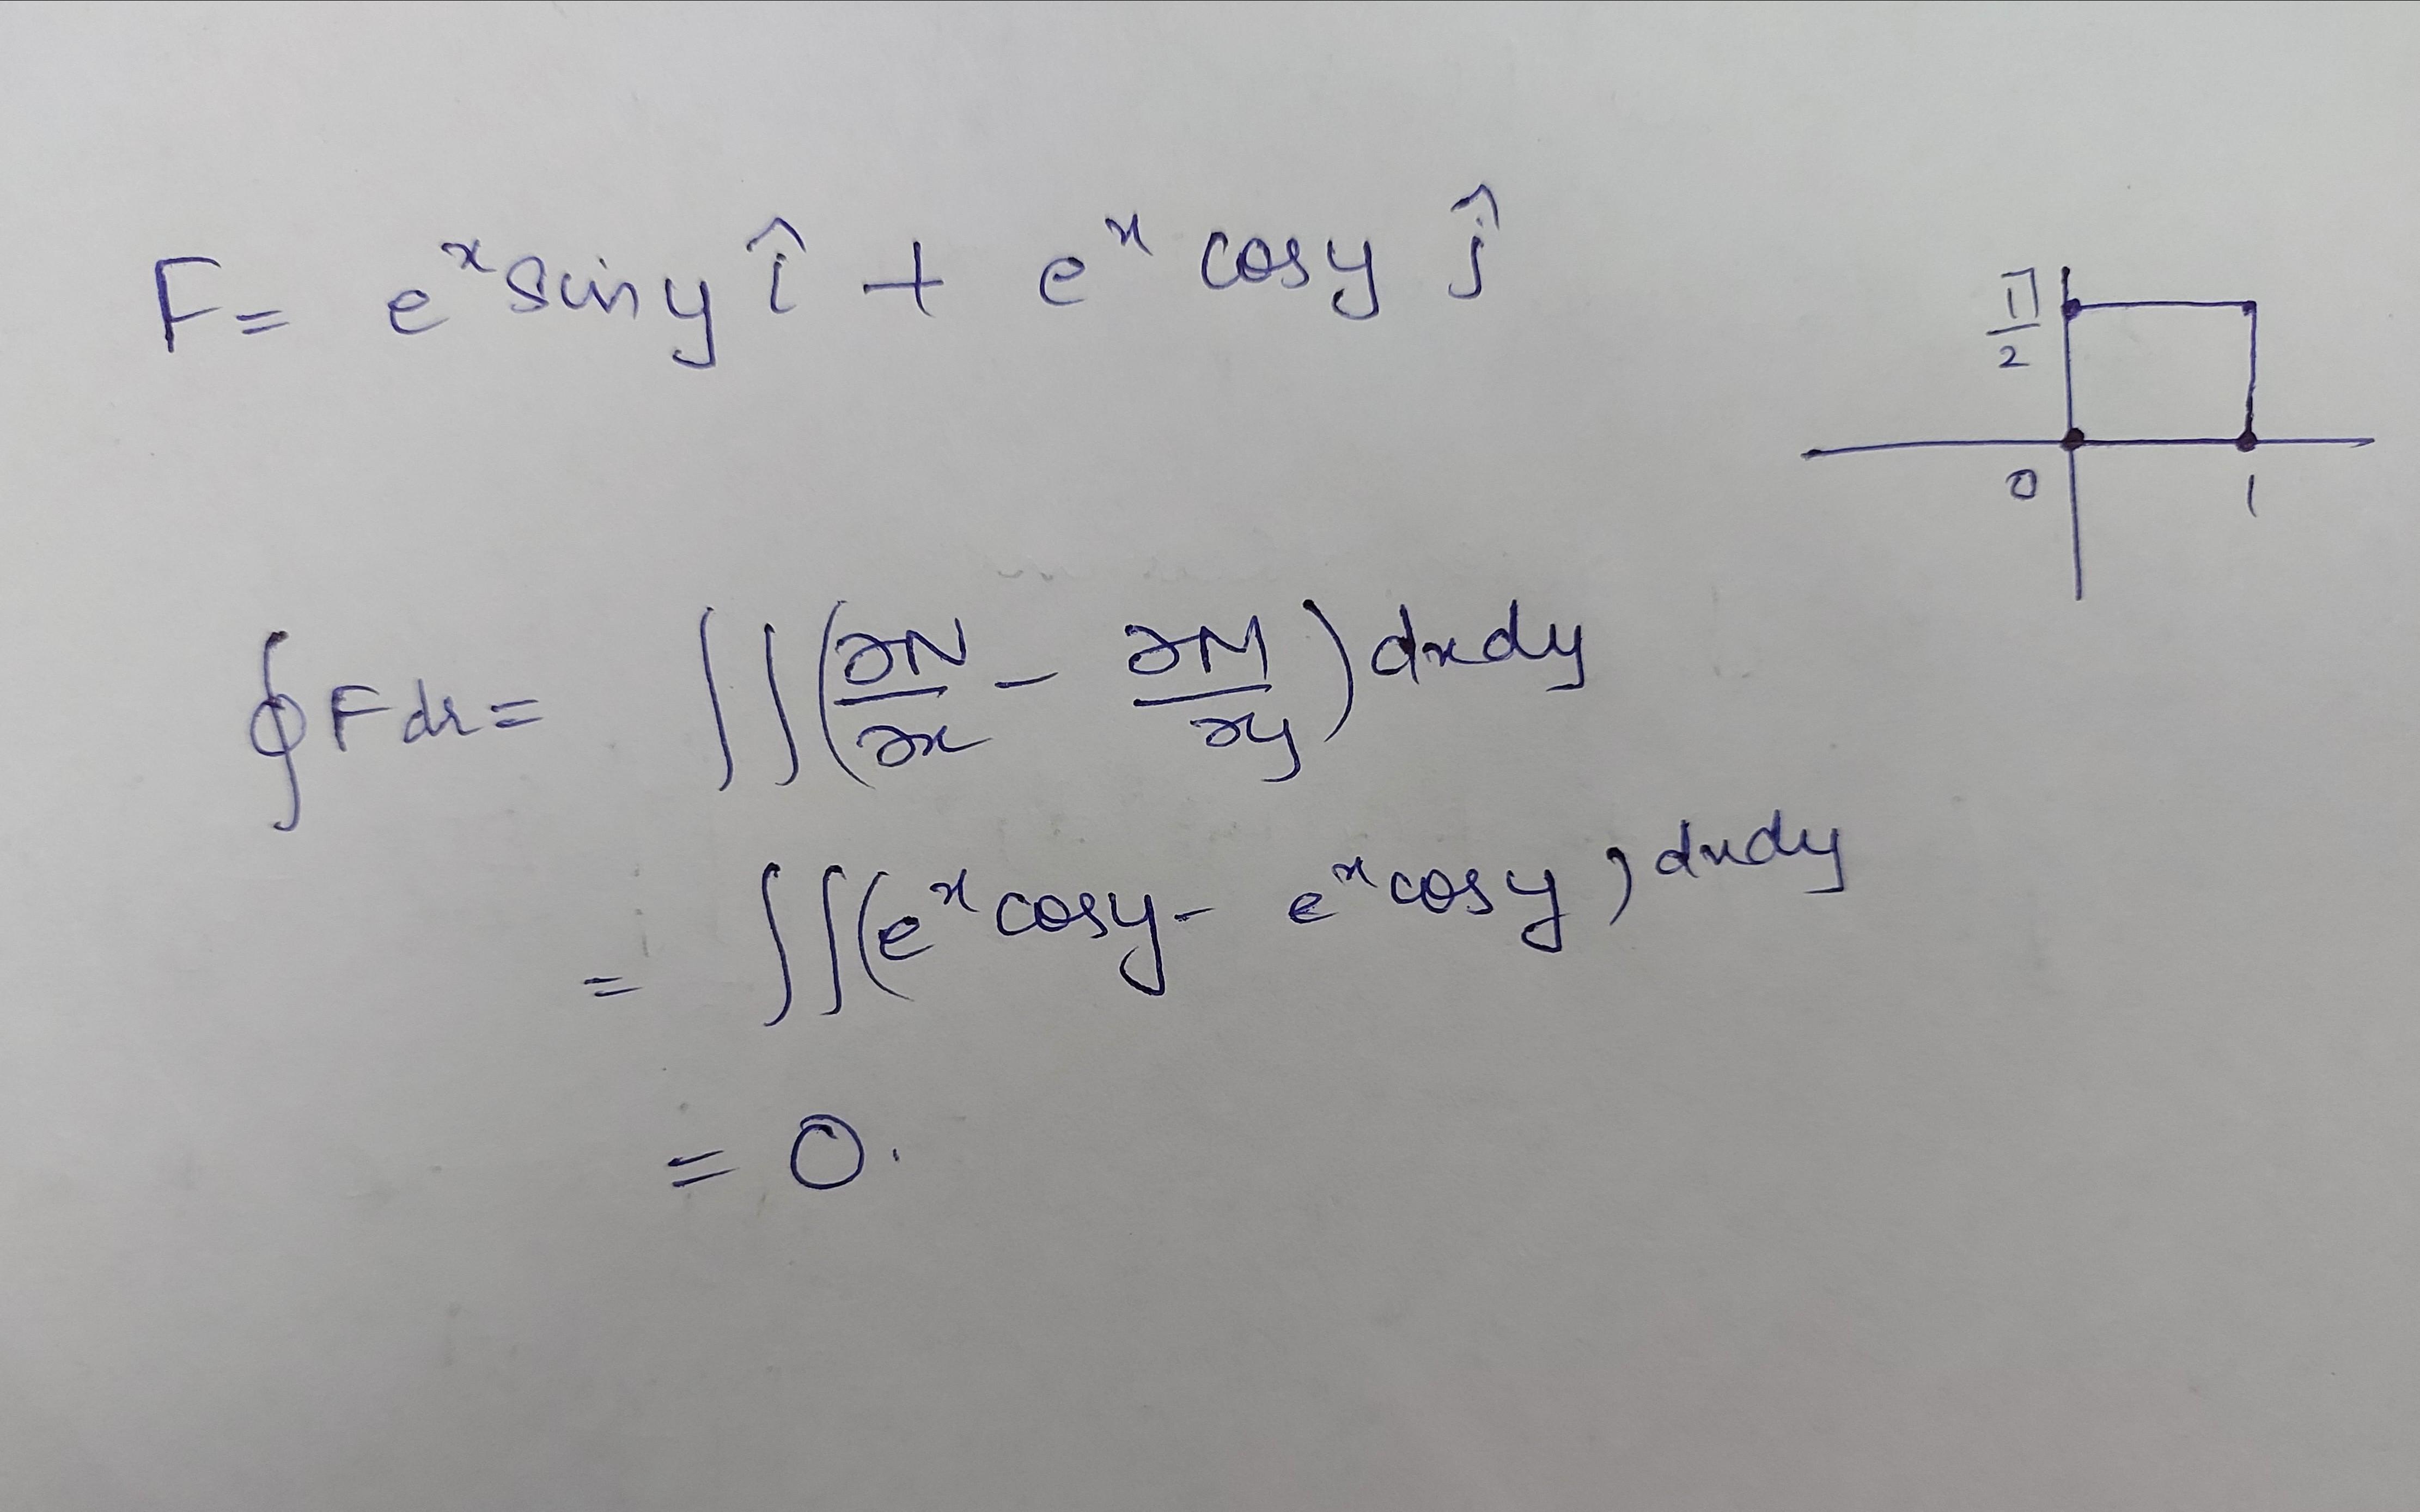 F= eˣ sin y î + eˣ cos y ĵ
π/2
0 1
∮ F dr = ∫∫(∂N/∂x - ∂M/∂y) dxdy
= ∫∫(eˣ cos y - eˣ cos y) dxdy
= 0.